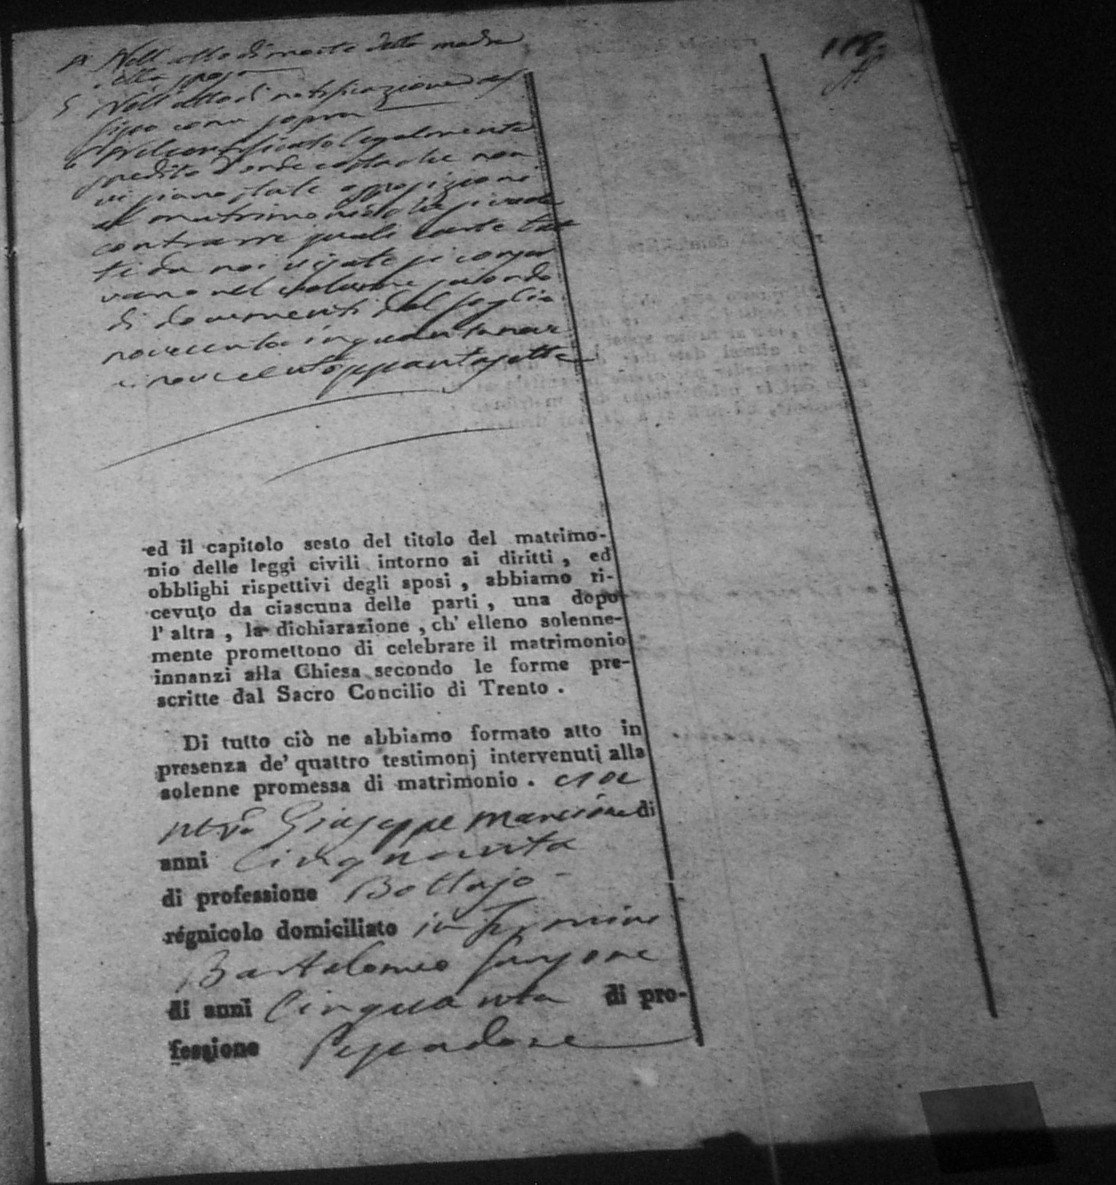 118
Nell'atto di morte della madre
della sposa
5 Nell'atto di notificazione af
fisso come sopra
6 Nel certificato legalmente
spedito d'onde costa che non
vi siano state opposizioni
al matrimonio
contrarre quali carte tut
te da noi vistate si conser
vano nel volume secondo
di documenti dal foglio
novecento cinquantanove
a novecento sessantasette
ed il capitolo sesto del titolo del matrimo-
nio delle leggi civili intorno ai diritti, ed
obblighi rispettivi degli sposi, abbiamo ri-
cevuto da ciascuna delle parti, una dopo
l'altra, la dichiarazione, ch'elleno solenne-
mente promettono di celebrare il matrimonio
innanzi alla Chiesa secondo le forme pre-
scritte dal Sacro Concilio di Trento.
Di tutto ciò ne abbiamo formato atto in
presenza de' quattro testimonj intervenuti alla
solenne promessa di matrimonio. cioe
Giuseppe Mancino di
anni Cinquanta
di professione Bottajo
regnicolo domiciliato in Termini
Bartolomeo
di anni Cinquanta di pro-
fessione Pescadore